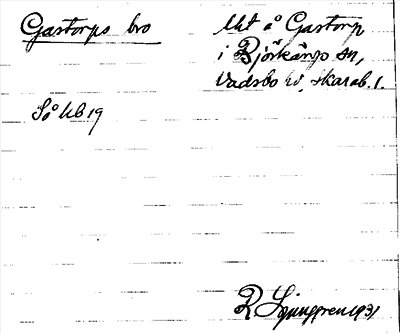 Gastorps bro
Ukt å Gastorp
i Björkängs sn,
Vadsbo hd, Skarab. l.
Så Ub 19
R Ljunggren 1931